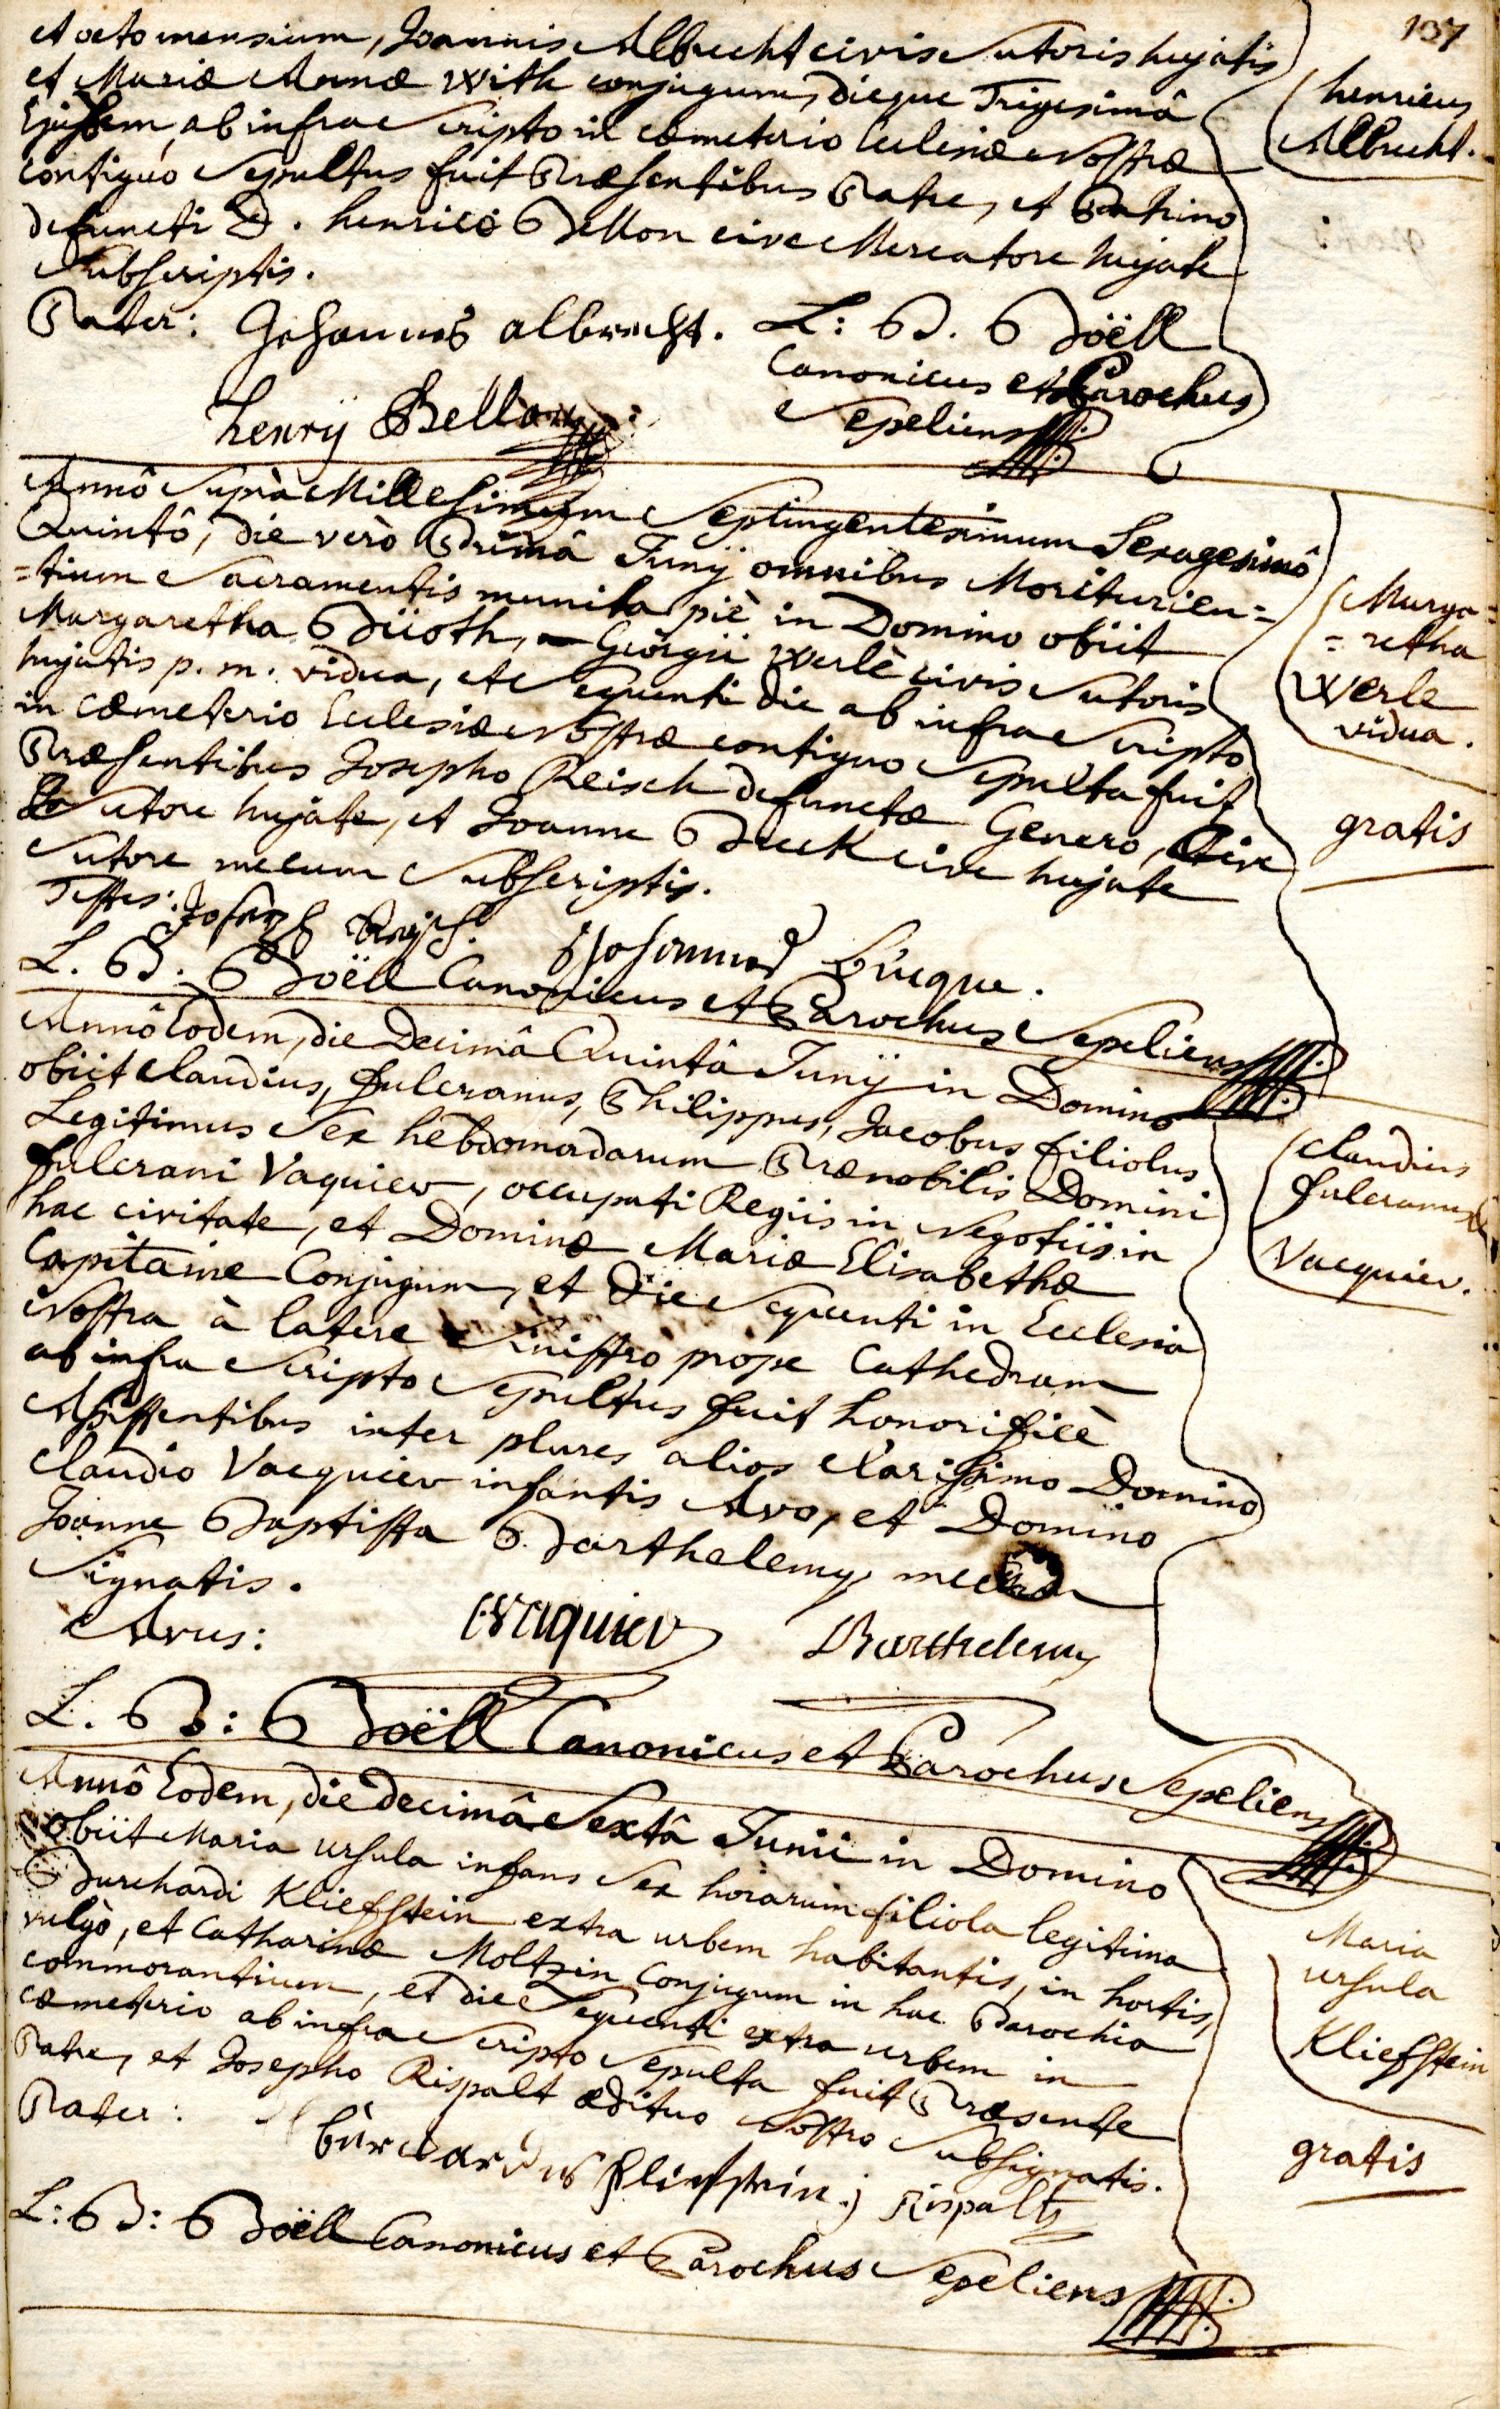 107
et octo mensium, Joannis Albrecht civis Sutoris hujatis
et Mariæ Annæ With conjugum, dieque Trigesimâ
Ejusdem, ab infra Scripto in cœmeterio Ecclesiæ Nostræ
contiguo Sepultus fuit Præsentibus Patre, et Patrino
defuncti D. henrico Bellon cive Mercatore hujate
Subscriptis.
henricus
Albrecht.
Pater: Johannes albrecht. L: B. Boëll
Canonicus et Parochus
Sepeliens
henrÿ Bellon
Annô Suprà Millesimum Septingentesimum Sexagesimô
Quintô, die verò Primâ Junÿ omnibus Moriturien=
=tium Sacramentis munita piè in Domino obiit
Margaretha Büoth, Georgii Werlè civis Sutoris
hujatis p. m. vidua, et Sequenti die ab infra Scripto
in Cœmeterio Ecclesiæ Nostræ contiguo Sepulta fuit
Præsentibus Josepho Reisch defunctæ Genero, Cive
Sutore hujate, et Joanne Buck cive hujate
Sutore mecum Subscriptis.
Marga=
=retha
Werle
vidua.
gratis
Testes: Joseph Reisch. Johannes Bucque.
L. B. Boëll Canonicus et Parochus Sepeliens
Annô Eodem, die Decimâ Quintâ Junÿ in Domino
obiit Claudius, fulcranus, Philippus, Jacobus filiolus
Legitimus Sex hebdomadarum Prænobilis Domini
fulcrani Vaquier, occupati Regiis in Negotiis in
hac civitate, et Dominæ Mariæ Elisabethæ
Capitaine Conjugum, et Die Sequenti in Ecclesia
Nostra à latere Sinistro prope Cathedram
ab infra Scripto Sepultus fuit honorificè
Assistentibus inter plures alios Clarissimo Domino
Claudio Vacquier infantis Avo, et Domino
Joanne Baptista Barthelemy mecum
Signatis.
Claudius
fulcranus
Vacquier.
Avus: Vaquier Barthelemy
L. B: Boëll Canonicus et Parochus Sepeliens
Annô Eodem, die decimâ Sextâ Junii in Domino
obiit Maria ursula infans Sex horarum filiola legitima
Burchardi Klieffstein extra urbem habitantis, in hortis,
vulgò, et Catharinæ Moltzin Conjugum in hac Parochia
commorantium, et die Sequenti extra urbem in
cœmeterio ab infra Scripto Sepulta fuit Præsente
Patre, et Josepho Rispalt ædituo Nostro Subsignatis.
Maria
ursula
Klieffstein
gratis
Pater: burcardus Klieffstein. j Rispalt
L: B: Boëll Canonicus et Parochus Sepeliens